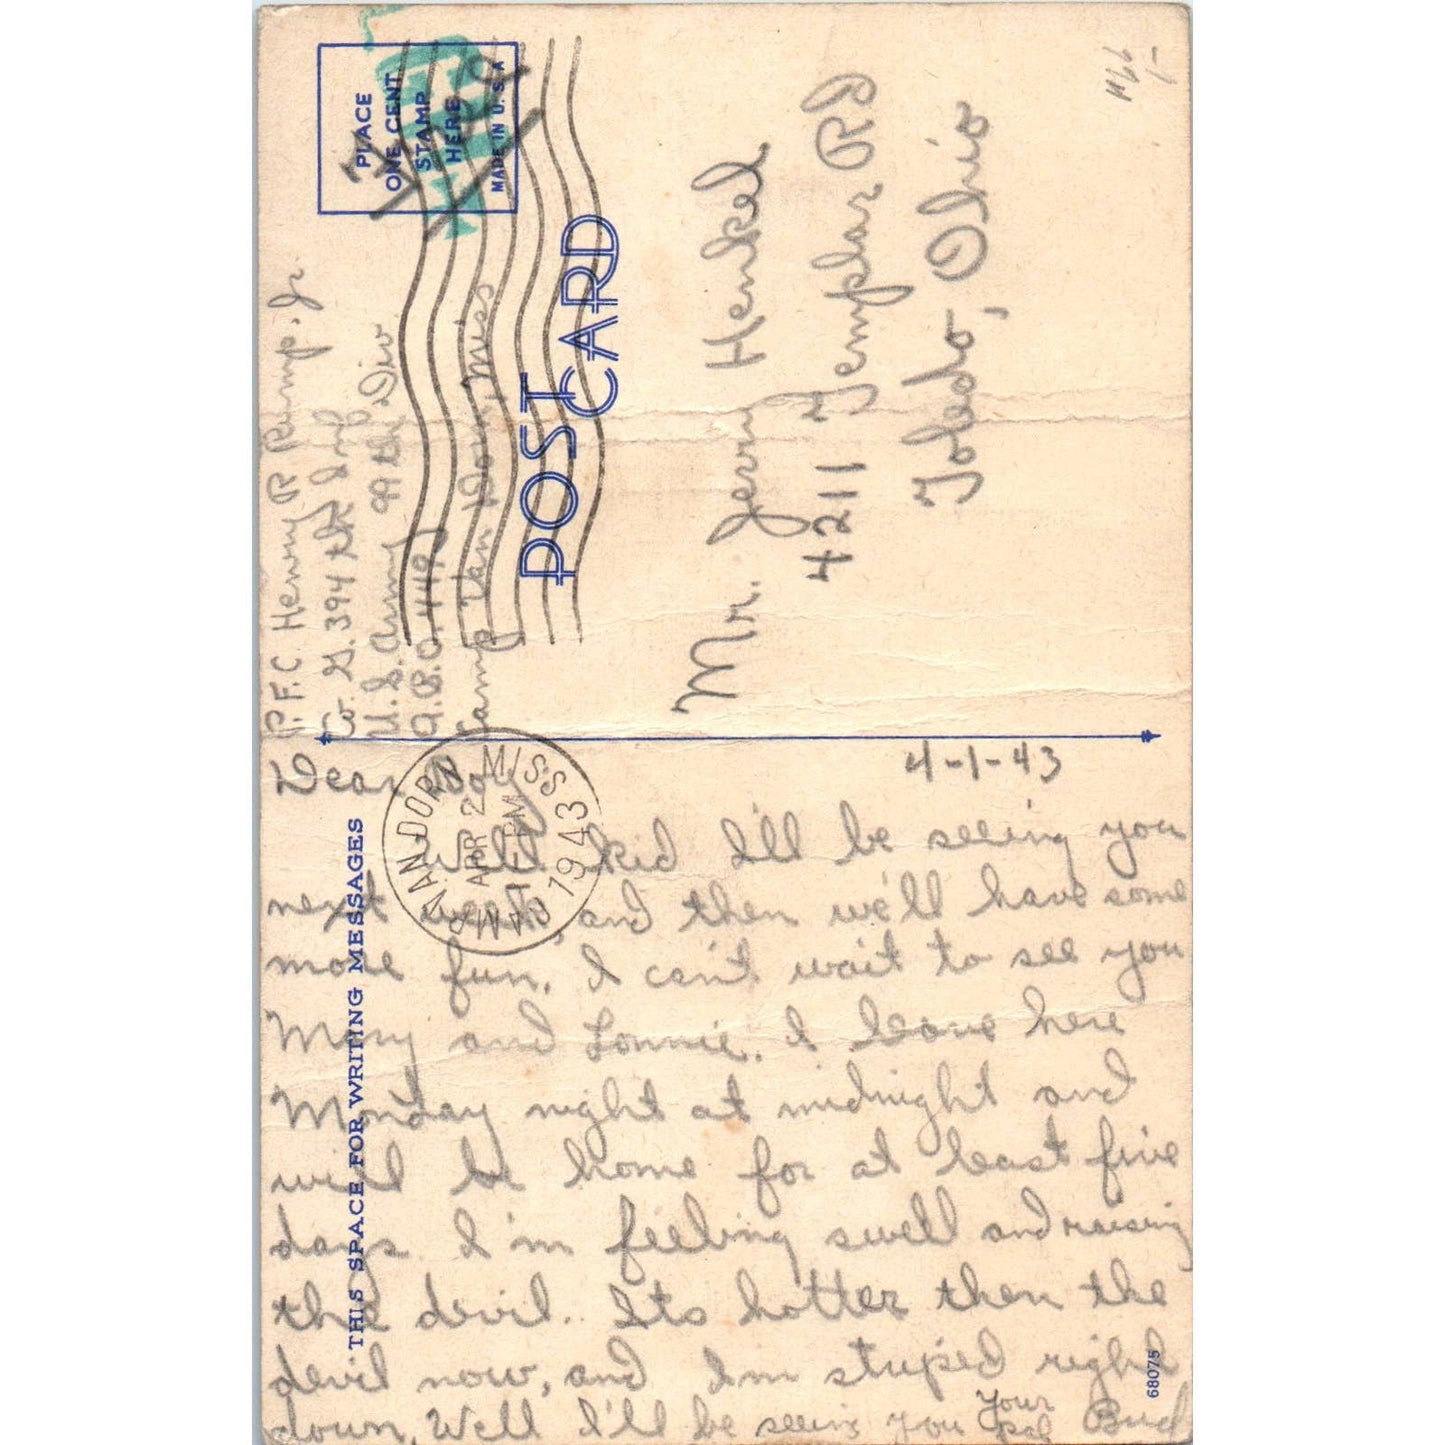 P.F.C. Henry R. Rump. Jr.
Co. G. 394 th Inf
U.S. Army 99 th Div
A.P.O. 449
Camp Van Dorn, Miss
Free
PLACE
ONE CENT
STAMP
HERE
MADE IN U.S.A
POST CARD
CAMP VAN DORN MISS
APR 2
1 PM
1943
Mr. Jerry Henkel
4211 Templar RD
Toledo, Ohio
1-
THIS SPACE FOR WRITING MESSAGES
4-1-43
Dear Boy
Well kid I'll be seeing you
next week, and then we'll have some
more fun. I can't wait to see you
Mary and Lonnie. I leave here
Monday night at midnight and
will be home for at least five
days. I'm feeling swell and raising
the devil. Its hotter then the
devil now, and I'm striped right
down. Well I'll be seein you
Your
Pal Bud
68075